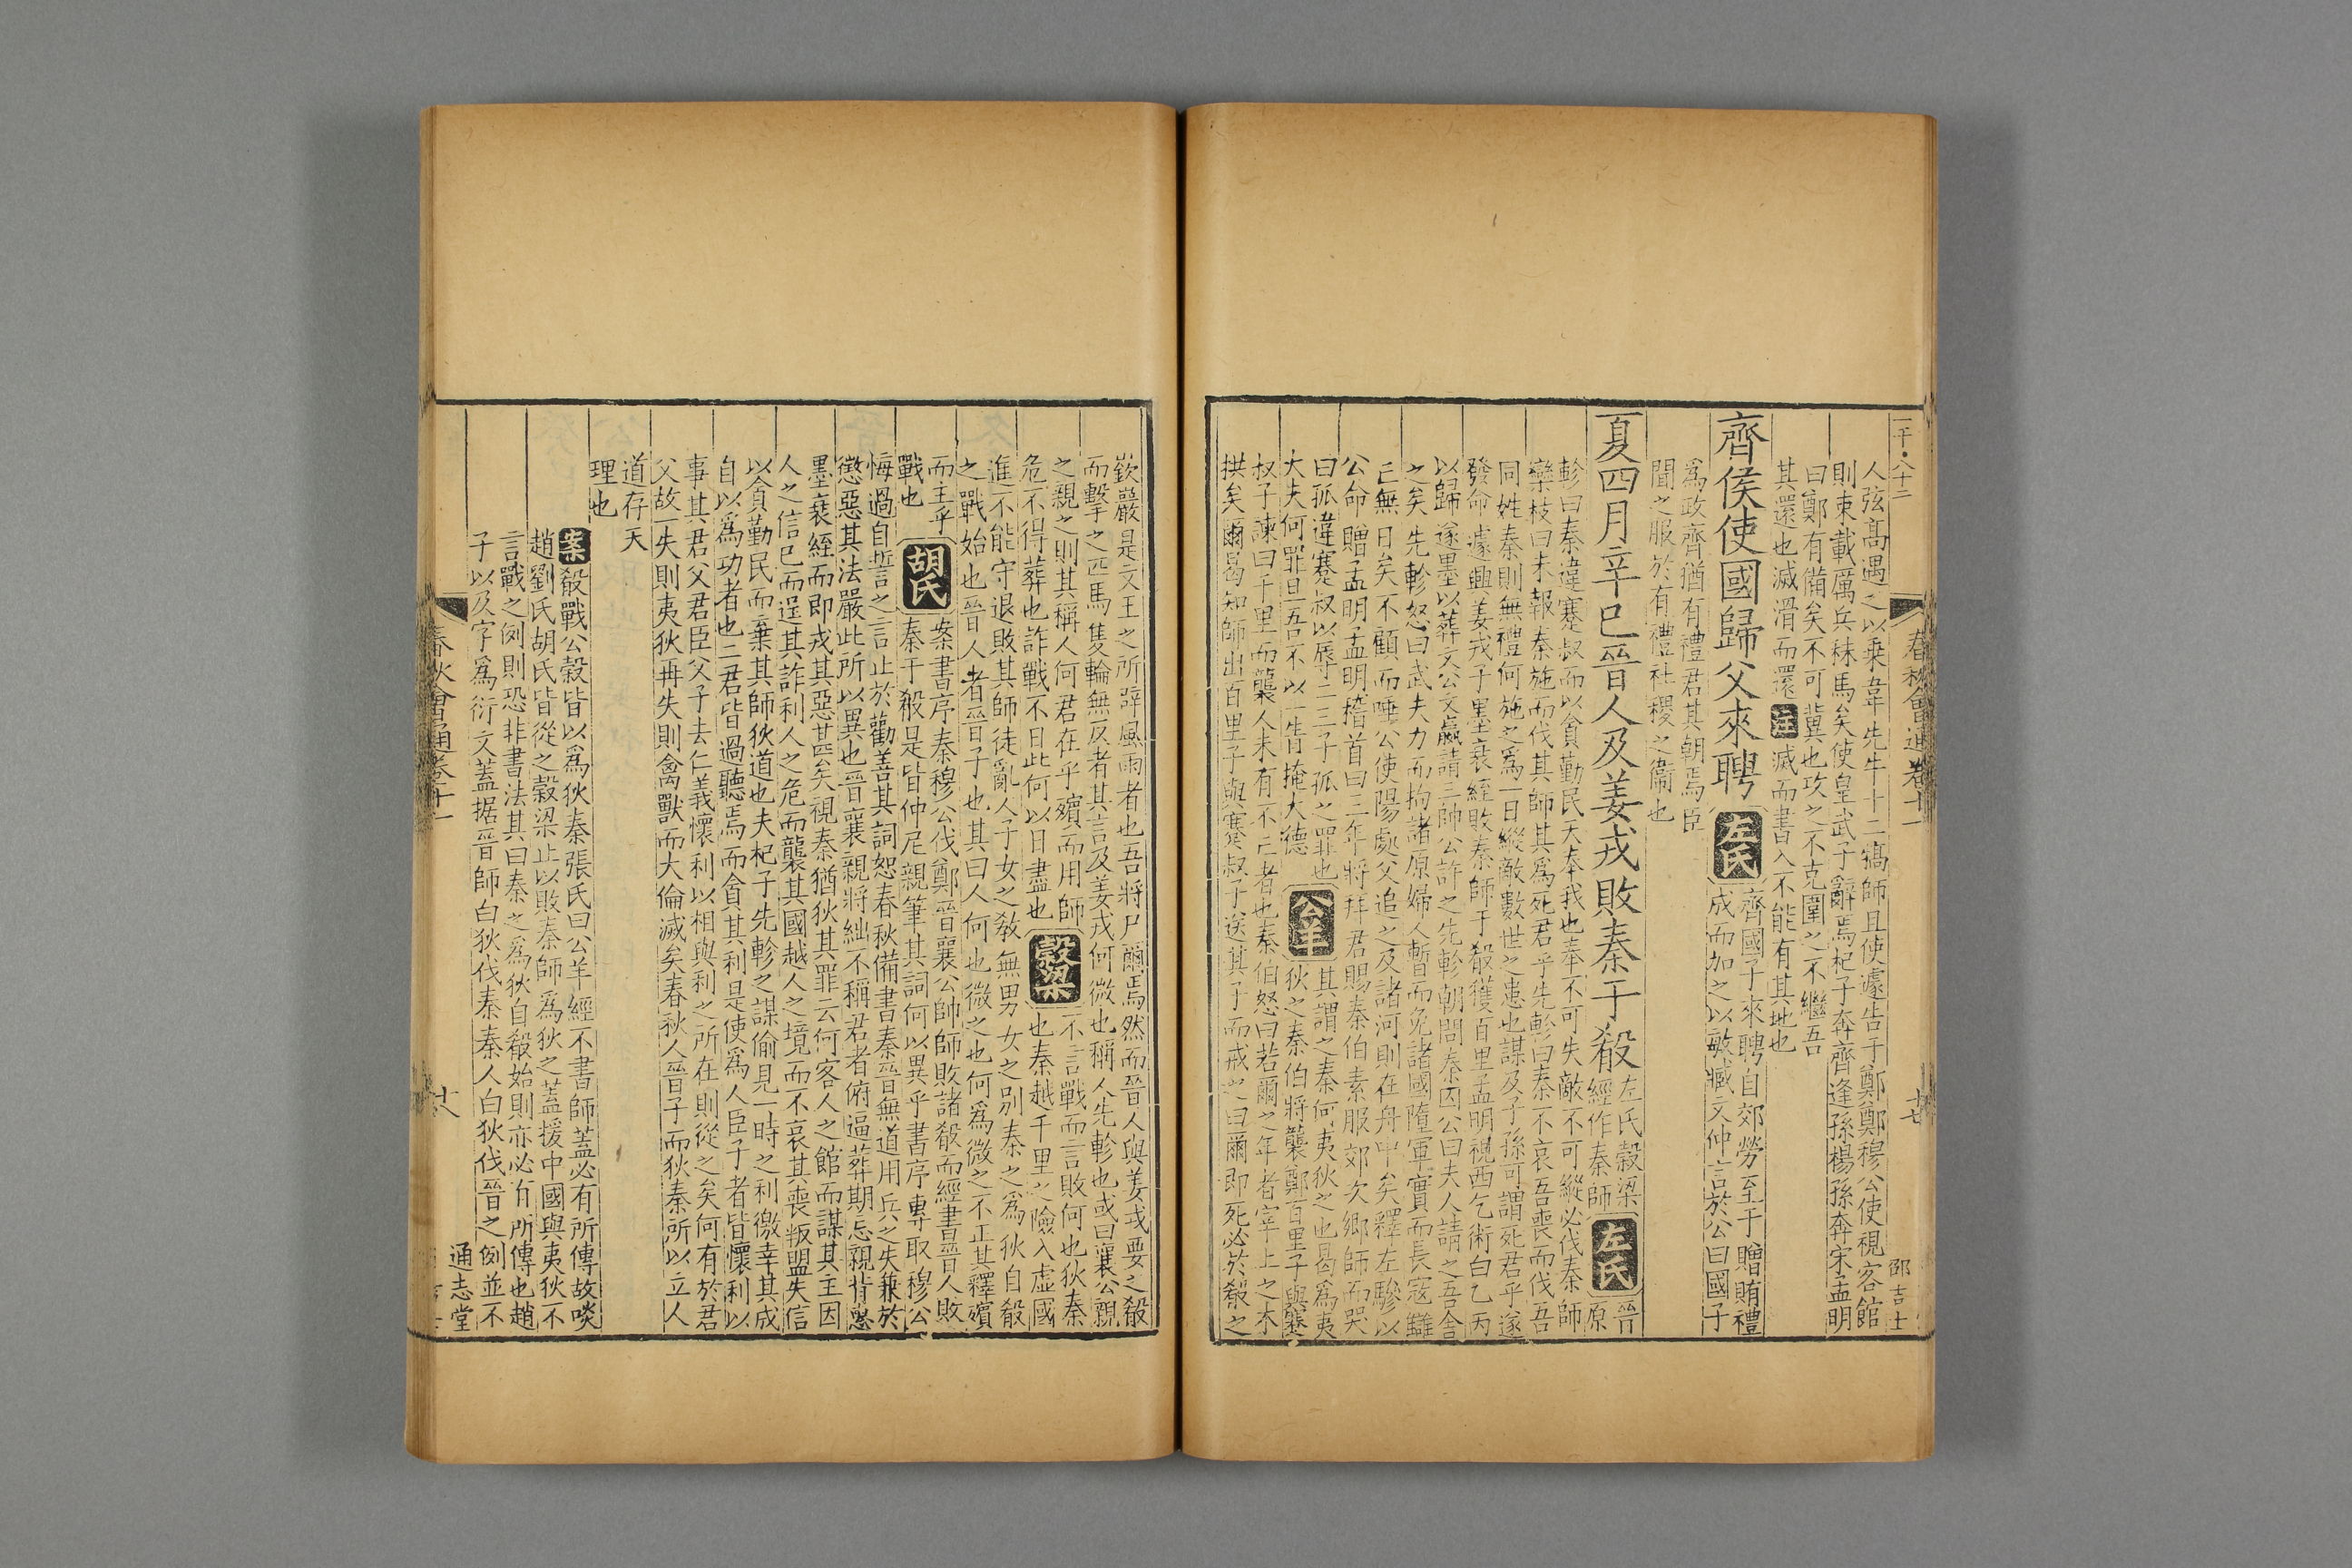 一千八十二
春秋會通卷十一
十七
邵吉士
人弦髙遇之以乗韋先牛十二犒師且使遽告于鄭鄭穆公使視客館
則束載厲兵秣馬矣使皇武子辭焉杞子奔齊逢孫楊孫奔宋孟明
曰鄭有備矣不可冀也攻之不克圍之不繼吾
其還也滅滑而還 註 滅而書入不能有其地也
齊侯使國歸父來聘 左氏 齊國子來聘自郊勞至于贈賄禮
成而加之以敏臧文仲言於公曰國子
爲政齊猶有禮君其朝焉臣
聞之服於有禮社稷之衞也
夏四月辛巳晉人及姜戎敗秦于殽 左氏穀梁
經作秦師 左氏 晉
原
軫曰秦違蹇叔而以貪勤民天奉我也奉不可失敵不可縱必伐秦師
欒枝曰未報秦施而伐其師其爲死君乎先軫曰秦不哀吾喪而伐吾
同姓秦則無禮何施之爲一日縱敵數世之患也謀及子孫可謂死君乎遂
發命遽興姜戎子墨衰絰敗秦師于殽獲百里孟明視西乞術白乙丙
以歸遂墨以葬文公文嬴請三帥公許之先軫朝問秦囚公曰夫人請之吾舍
之矣先軫怒曰武夫力而拘諸原婦人暫而免諸國隳軍實而長寇讎
亡無日矣不顧而唾公使陽處父追之及諸河則在舟中矣釋左驂以
公命贈孟明孟明稽首曰三年將拜君賜秦伯素服郊次鄉師而哭
曰孤違蹇叔以辱二三子孤之罪也 公羊 其謂之秦何夷狄之也曷爲夷
大夫何罪且吾不以一眚掩大德 狄之秦伯將襲鄭百里子與蹇
叔子諫曰千里而襲人未有不亡者也秦伯怒曰若爾之年者宰上之木
拱矣爾曷知師出百里子與蹇叔子送其子而戒之曰爾即死必於殽之
嶔巖是文王之所辟風雨者也吾將尸爾焉然而晉人與姜戎要之殽
而擊之匹馬隻輪無反者其言及姜戎何微也稱人先軫也或曰襄公親
之親之則其稱人何君在乎殯而用師
危不得葬也詐戰不日此何以日盡也 穀梁 不言戰而言敗何也狄秦
也秦越千里之險入虛國
進不能守退敗其師徒亂人子女之敎無男女之别秦之爲狄自殽
之戰始也晉人者晉子也其曰人何也微之也何爲微之不正其釋殯
而主乎
戰也 胡氏 案書序秦穆公伐鄭晉襄公帥師敗諸殽而經書晉人敗
秦于殽是皆仲尼親筆其詞何以異乎書序專取穆公
悔過自誓之言止於勸善其詞恕春秋備書秦晉無道用兵之失兼於
懲惡其法嚴此所以異也晉襄親將絀不稱君者俯逼葬期忘親背惠
墨衰絰而即戎其惡甚矣視秦猶狄其罪云何客人之館而謀其主因
人之信巳而逞其詐利人之危而襲其國越人之境而不哀其喪叛盟失信
以貪勤民而棄其師狄道也夫杞子先軫之謀偷見一時之利徼幸其成
自以爲功者也二君皆過聽焉而貪其利是使爲人臣子者皆懷利以
事其君父君臣父子去仁義懷利以相與利之所在則從之矣何有於君
父故一失則夷狄再失則禽獸而大倫滅矣春秋人晉子而狄秦所以立人
道存天
理也 案 殽戰公榖皆以爲狄秦張氏曰公羊經不書師蓋必有所傳故啖
趙劉氏胡氏皆從之榖梁止以敗秦師爲狄之蓋援中國與夷狄不
言戰之例則恐非書法其曰秦之爲狄自殽始則亦必有所傳也趙
子以及字爲衍文蓋据晉師白狄伐秦秦人白狄伐晉之例並不
通志堂
春秋會通卷十一
十八